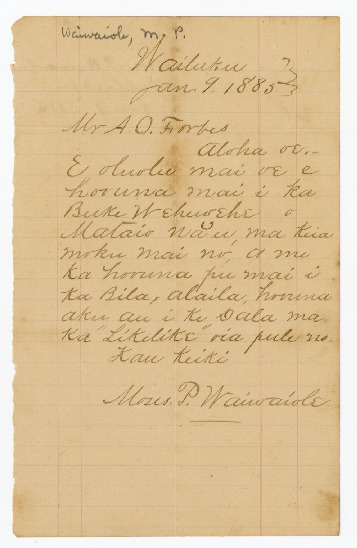 Waiwaiole, M. P.
Wailuku
Jan. 9. 1885
Mr A. O. Forbes
Aloha oe.-
E oluolu mai oe e
hoouna mai i ka
Buke Wehewehe o
Mataio na'u, ma keia
moku mai no, a me
ka hoouna pu mai i
ka Bila, alaila, hoouna
aku au i ke Dala ma
ka "Likelike" oia pule no.
Kau Keiki
Moses. P. Waiwaiole